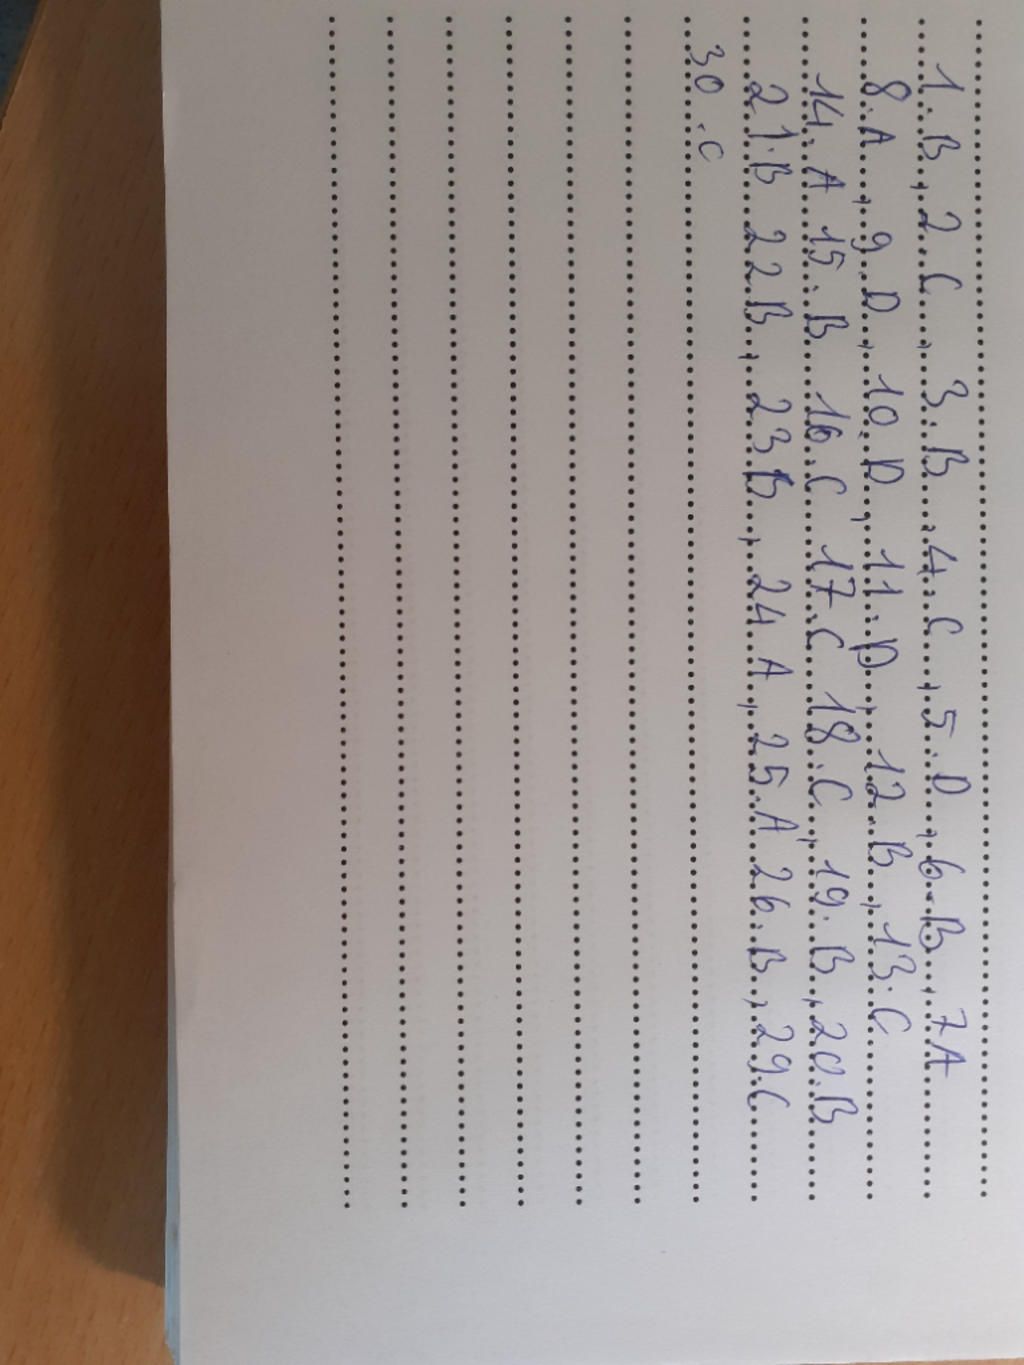 1. B, 2. C, 3. B, 4. C, 5. D, 6. B, 7A
8. A, 9. D, 10. D, 11. D, 12. B, 13. C
14, A 15. B 16. C 17. C 18. C, 19. B, 20. B
21. B 22B, 23B, 24A, 25. A 26. B, 29. C
30. C